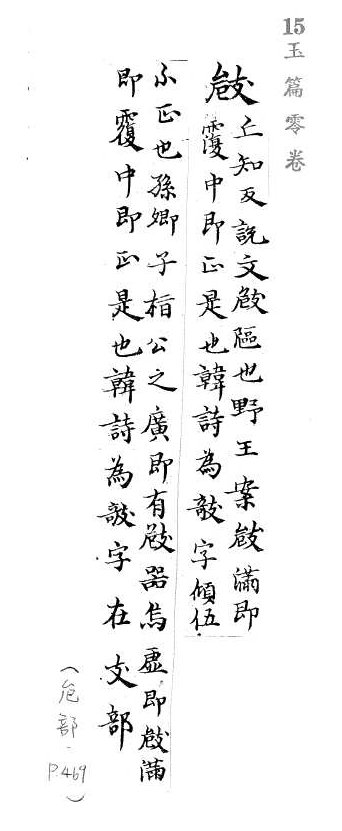 15 玉篇零卷
㩻丘知反說文㩻䧢也野王案㩻滿即
䨱中即正是也韓詩為敧字傾伍
不正也孫卿子桓公之廣即有㩻器焉虛即㩻滿
即䨱中即正是也韓詩為敧字在支部
(危部.P.469)